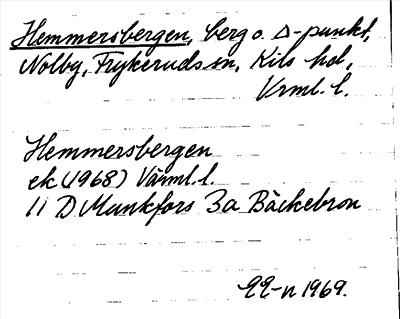 Hemmersbergen, berg o. Δ-punkt,
Nolby, Frykeruds sn, Kils hd,
Vrml. l.
Hemmersbergen
ek (1968) Värml. l.
11 D Munkfors 3a Bäckebron
1969.